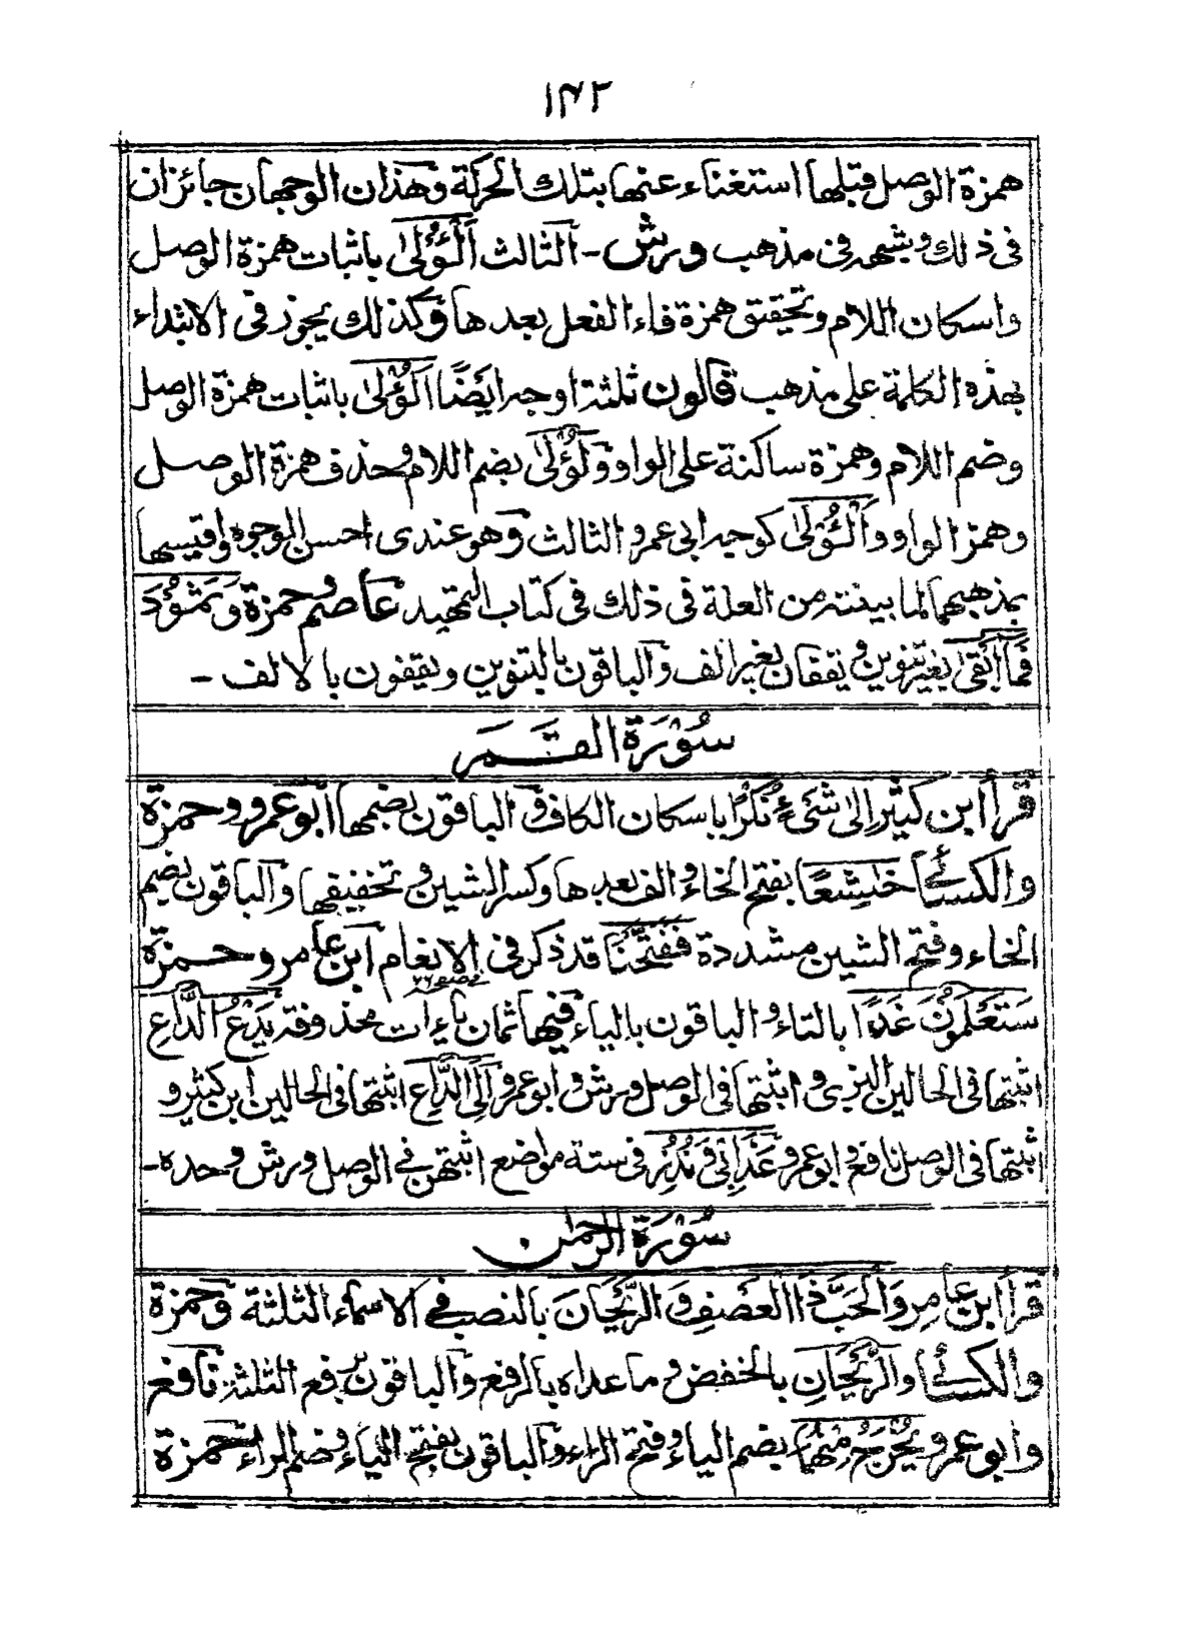 ١٤٢
همزة الوصل قبلها استغناء عنها بتلك الحركة وهذان الوجهان جائزان
فى ذلك وشبهه فى مذهب ورش - الثالث اَلْؤُلىٰ باثبات همزة الوصل
واسكان اللام وتحقيق همزة فاء الفعل بعدها وكذلك يجوز فى الابتداء
بهذه الكلمة على مذهب قالون ثلثة اوجه ايضًا اَلُؤْلىٰ باثبات همزة الوصل
وضم اللام وهمزة ساكنة على الواو ولُؤْلىٰ بضم اللام وحذف همزة الوصل
وهمز الواو واَلْـُٔوْلىٰ كوجه ابى عمرو الثالث وهو عندى احسن الوجوه واقيسها
بمذهبهما لما بينته من العلة فى ذلك فى كتاب التمهيد عاصم وحمزة وَثَمُوْدَ
فَمَا اَبْقىٰ بغير تنوين ويقفان بغير الف والباقون بالتنوين ويقفون بالالف -
سُوْرَة القَمَر
قرأ ابن كثير اِلىٰ شَىْءٍ نُكْرٍ باسكان الكاف والباقون بضمها ابو عمرو وحمزة
والكسائى خٰشِعًا بفتح الخاء والف بعدها وكسر الشين وتخفيفها والباقون بضم
الخاء وفتح الشين مشددة فَفَتَحْنَا قد ذكر فى الانعام ابن عامر وحمزة
سَتَعْلَمُوْنَ غَدًا بالتاء والباقون بالياء فيها ثمان ياءات محذوفة يَدْعُ الدَّاعِ
اثبتها فى الحالين البزى و اثبتها فى الوصل ورش وابو عمرو اِلَى الدَّاعِ اثبتها فى الحالين ابن كثير و
اثبتها فى الوصل نافع وابو عمرو عَذَابِىْ وَنُذُرِ فى ستة مواضع اثبتهن فى الوصل ورش وحده -
سُوْرَة الرحمٰن
قرأ ابن عامر وَالْحَبَّ ذَا الْعَصْفِ وَ الرَّيْحَانَ بالنصب فى الاسماء الثلثة وحمزة
والكسائى والرَّيْحَانِ بالخفض وما عداه بالرفع والباقون برفع الثلثة نافع
وابو عمرو يُخْرَجُ مِنْهُمَا بضم الياء وفتح الراء والباقون بفتح الياء وضم الراء حمزة